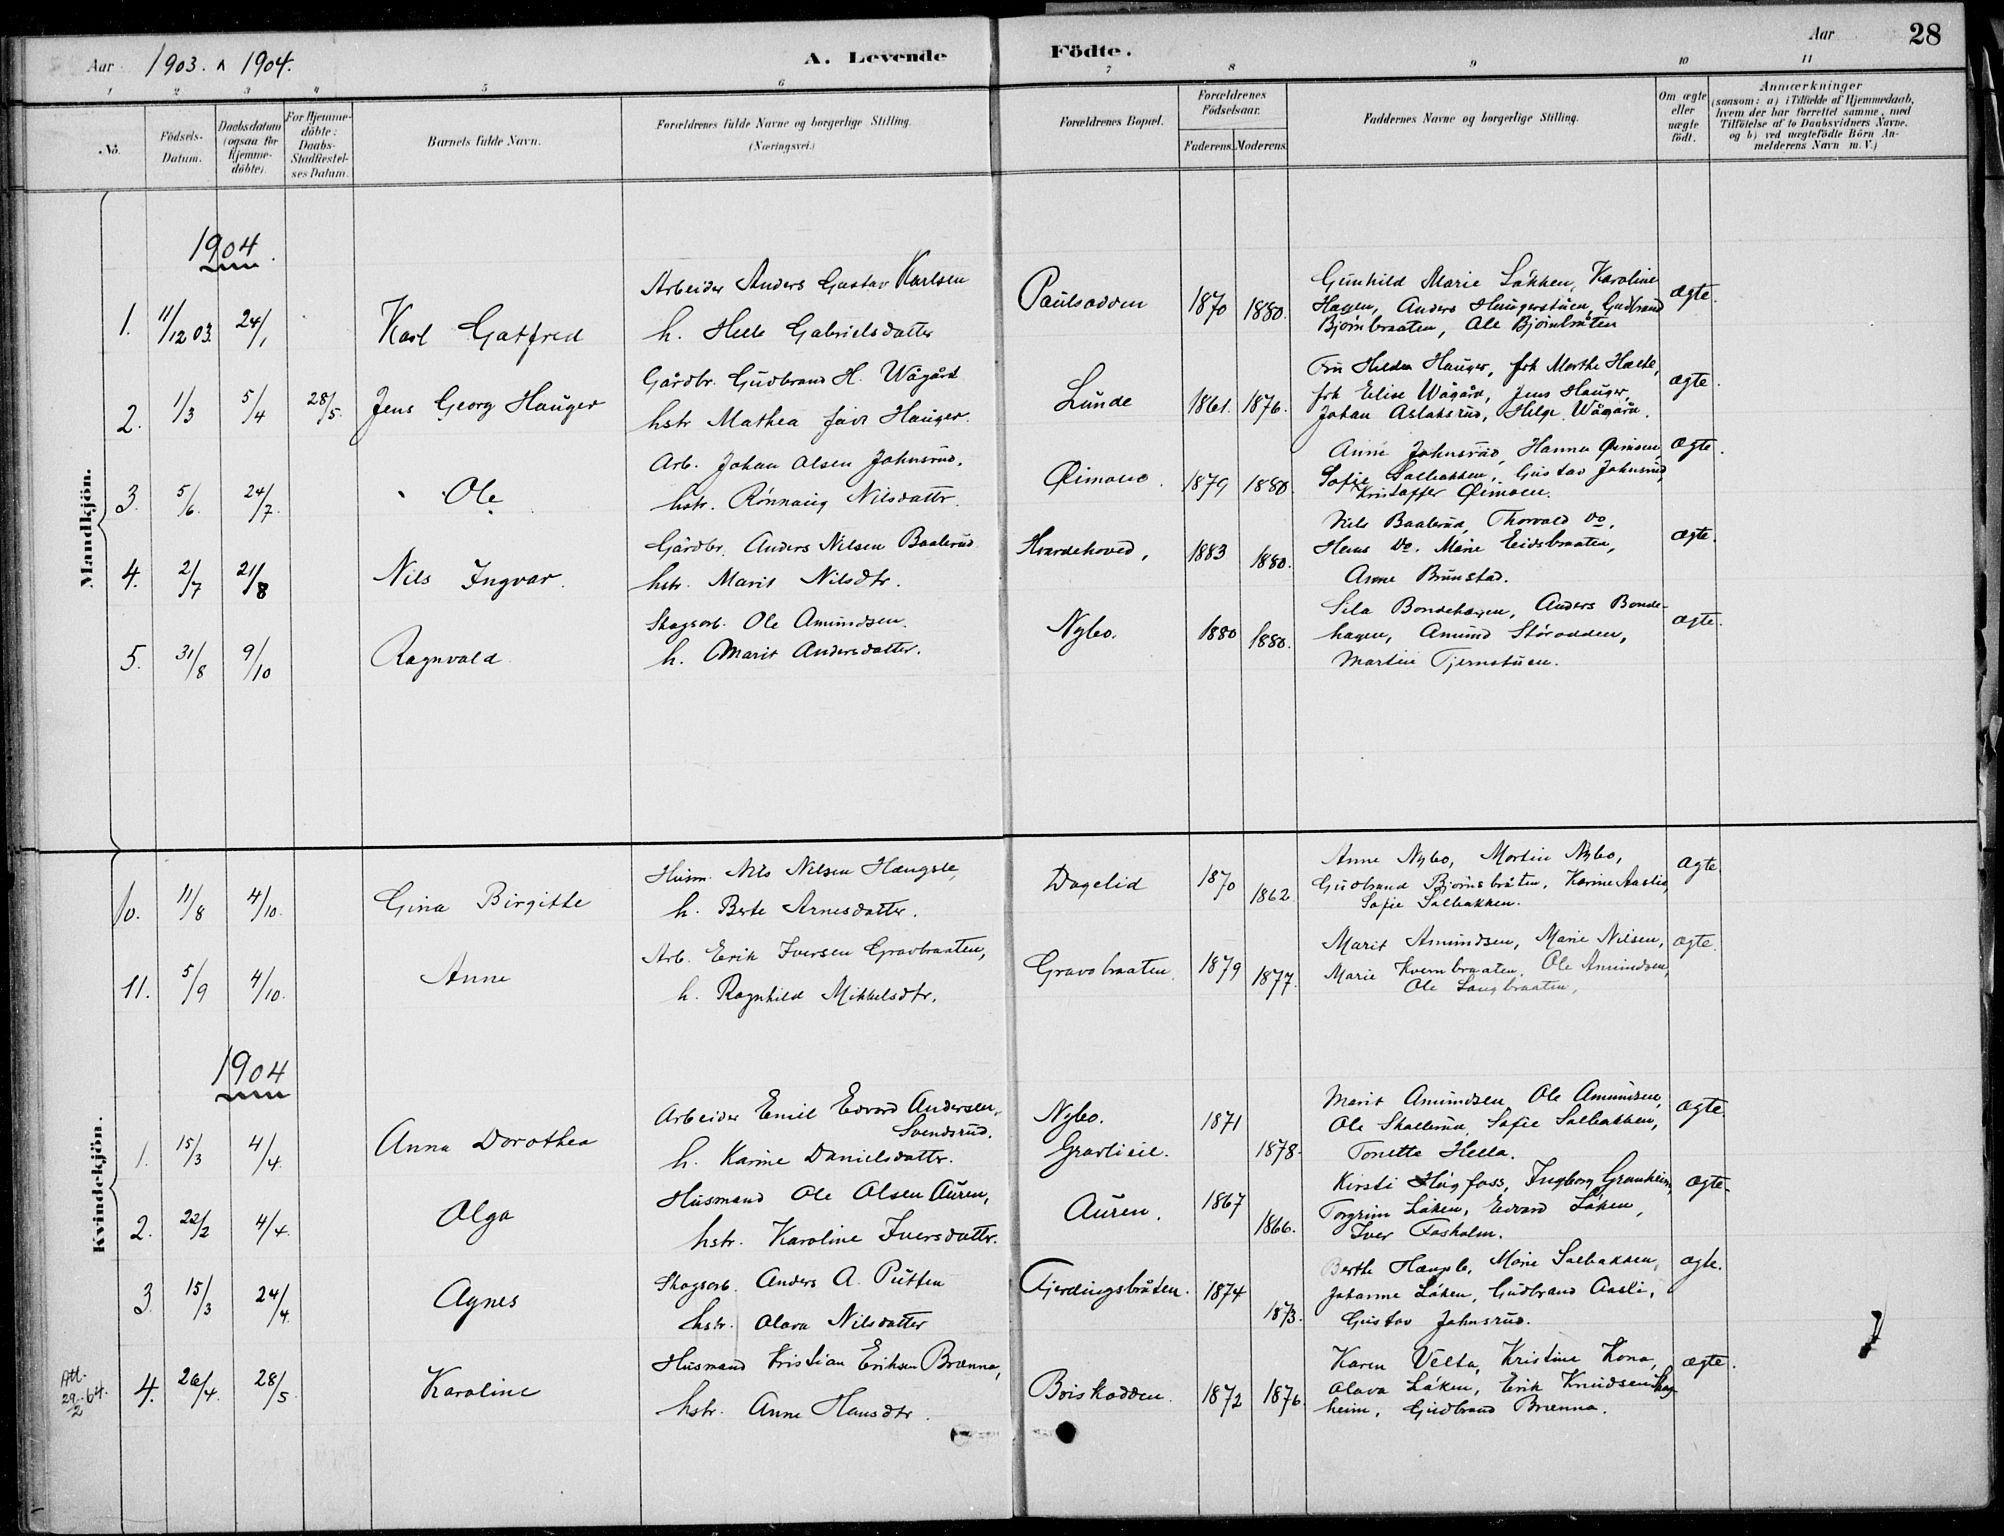 Aar 1903. ^ 1904. A. Levende Födte. Aar 28
1 2 3 4 5 6 7 8 9 10 11
No. Födsels-Datum. Daabsdatum (ogsaa for hjemme-döbte). For Hjemme-döbte: Daabs-Stadfæstel-ses Datum. Barnets fulde Navn. Forældrenes fulde Navne og borgerlige Stilling. (Næringsvei.) Forældrenes Bopæl. Forældrenes Födselsaar. Faderens. Moderens. Faddernes Navne og borgerlige Stilling. Om ægte eller uægte födt. Anmærkninger (saasom: a) i Tilfælde af Hjemmedaab, hvem der har forrettet samme, med Tilföielse af to Daabsvidners Navne, og b) ved uægtefödte Börn An-melderens Navn m. V.)
Mandkjön.
1904.
Arbeider Anders Gustav Karlsen Gunhild Marie Løkken, Karoline
1. 11/12 03. 24/1 Karl Gotfred Paulsodden 1870 1880. Hagen, Anders Haugerstuen, Gudbrand ægte.
h. Helle Gabrielsdatter Bjørnbraaten, Ole Bjørnbråten
Gårdbr. Gudbrand H. Wågård Fru Hilda Hauger, frk Marthe Hælle,
2. 1/3 5/4 28/5. Jens Georg Hauger Lunde 1861. 1876. frk Elise Wågård, Jens Hauger, ægte.
hstr Mathea født Hauger. Johan Aslaksrud, Helge Wågård.
Arb. Johan Olsen Johnsrud. Anne Johnsrud, Hanna Øimoen,
3. 5/6. 24/7. Ole Øimoen. 1879 1880. Sofie Salbakken, Gustav Johnsrud, ægte.
hstr. Rønnaug Nilsdatter. Kristoffer Øimoen.
Gårdbr. Anders Nilsen Baalerud Niels Baalerud, Thorvald Do,
4. 2/7 21/8 Nils Ingvar. Hvardehoved, 1883 1880. Hans Do. Marie Eidsbraaten, ægte.
hstr. Marit Nilsdtr. Anne Brunstad.
Skogsarb. Ole Amundsen. Sila Bondehagen, Anders Bonde-
5. 31/8 9/10 Ragnvald Nybo. 1880 1880. hagen, Amund Størodden, ægte.
h. Marit Andersdatter. Martin Tjernstuen.
Kvindekjön.
Husm. Nils Nilsen Haugsle, Anne Nybo, Martin Nybo,
10. 11/8 4/10. Gina Birgitte Dagelid 1870 1862. Gudbrand Bjørnsbråten, Karine Aaslie, ægte
h. Berte Arnesdatter. Sofie Salbakken.
Arb. Erik Iversen Gravbraaten, Marit Amundsen, Marie Nilsen,
11. 5/9 4/10. Anne Gravsbraaten. 1879 1877. Marie Kvernbraaten. Ole Amundsen, ægte.
h. Ragnhild Mikkelsdtr. Ole Langbraaten,
1904
Arbeider Emil Edvard Andersen, Nybo. Marit Amundsen, Ole Amundsen,
Svendsrud. 1871 Ole Skallerud, Sofie Salbakken, ægte.
1. 15/3 4/4. Anna Dorothea h. Karine Danielsdatter. 1878. Tonette Hella.
Husmand Ole Olsen Auren, Kirsti Høgfoss, Ingborg Granheim,
2. 22/2 4/4. Olga Auren. 1867 1866. Torgrim Løken, Edvard Løken, ægte.
hstr. Karoline Iversdatter. Iver Fosholm.
Skogsarb. Anders A. Putten Berthe Haugsle, Marie Salbakken,
3. 15/3 24/4. Agnes Fjerdingsbråten. 1874 1873. Johanne Løken, Gudbrand Aasli, ægte.
hstr. Olava Nilsdatter Gustav Johnsrud.
Husmand Kristian Eriksen Brænna, Karen Velta, Kristine Kona,
Att. 29/2-64. 4. 26/4. 28/5 Karoline Boiskodden. 1872 1876. Olava Løken, Erik Knudsen Hag- ægte.
hstr. Anne Hansdtr. heim, Gudbrand Brænna.